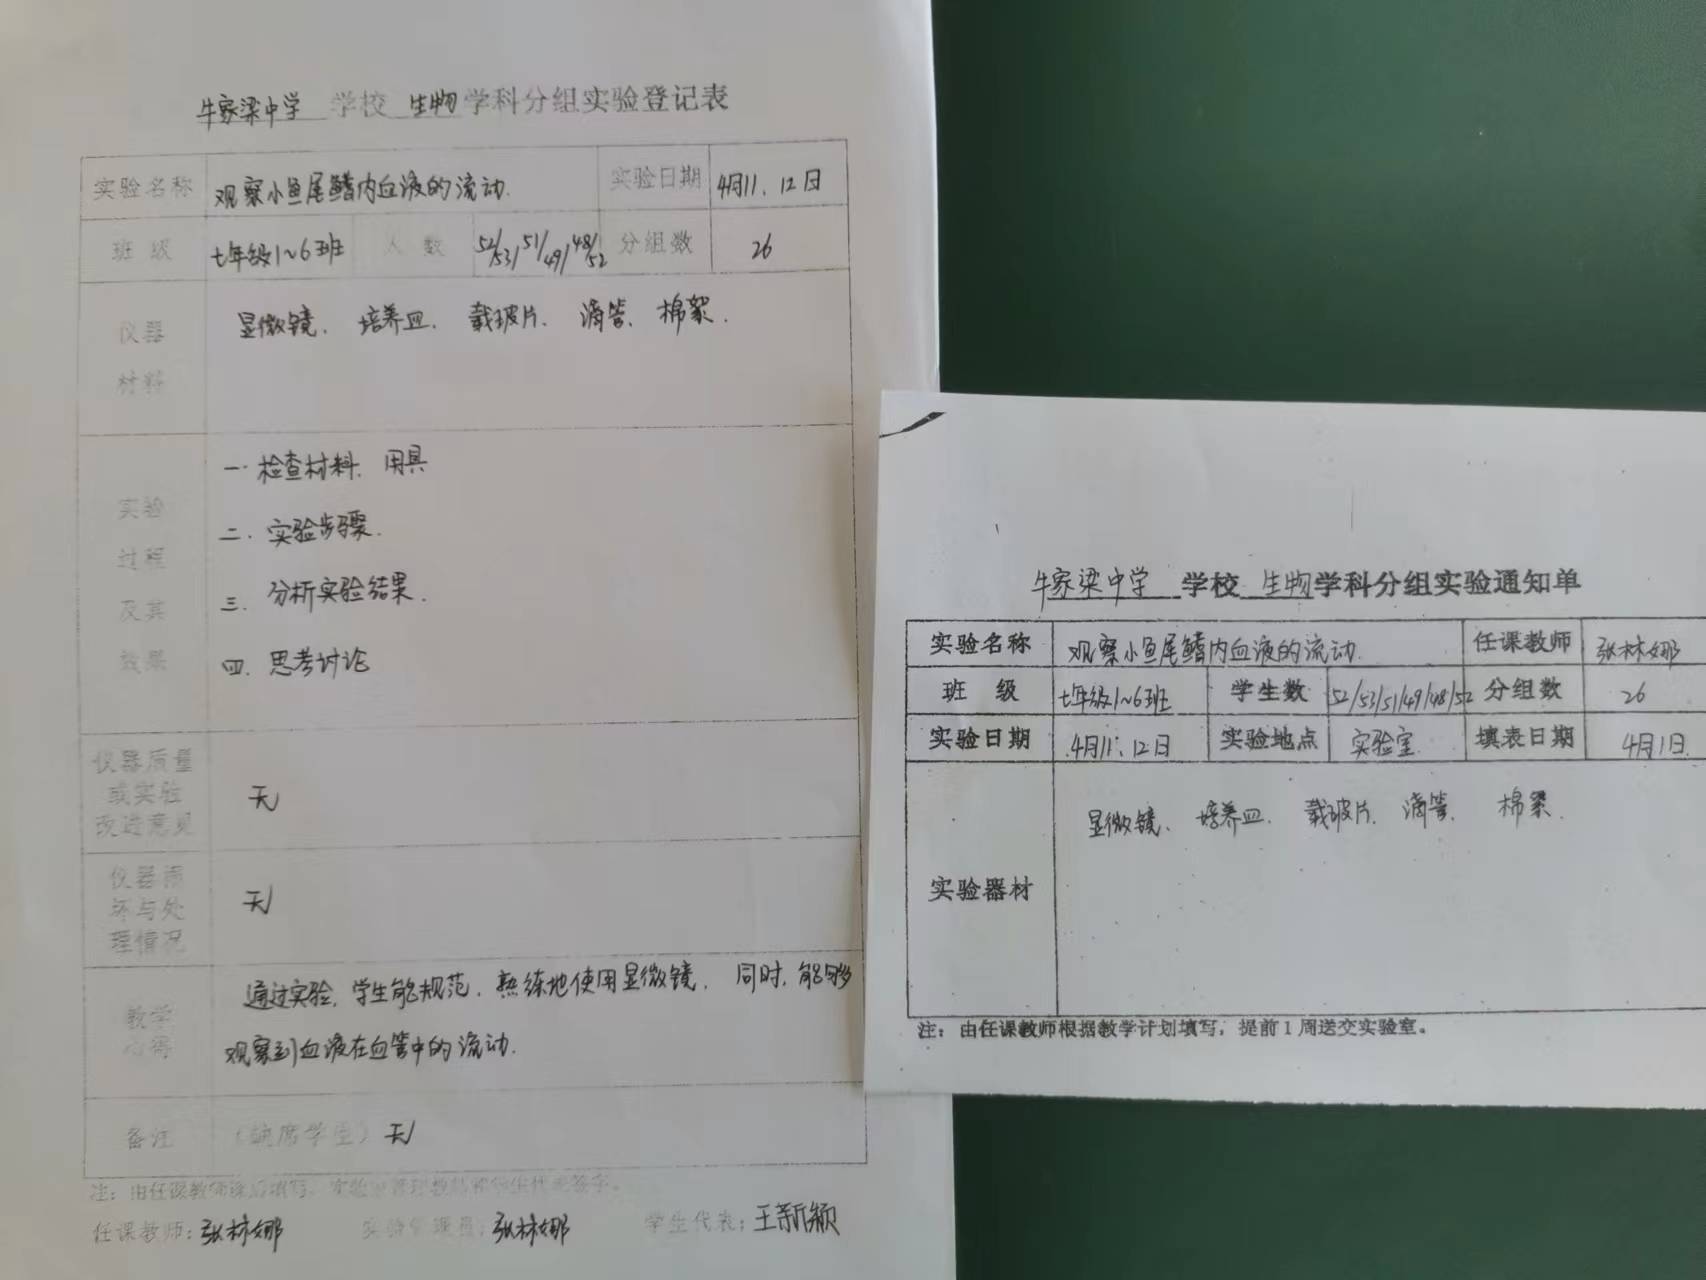 牛家梁中学 学校 生物 学科分组实验登记表
实验名称 观察小鱼尾鳍内血液的流动. 实验日期 4月11、12日
班 级 七年级1~6班 人 数 52/53/51/49/48/52 分组数 26
仪器 显微镜、培养皿、载玻片、滴管、棉絮.
材料
实验
过程
及其
效果
一. 检查材料、用具
二. 实验步骤.
三. 分析实验结果.
四. 思考讨论
仪器质量
或实验
改进意见
无
仪器损
坏与处
理情况
无
教学
心得
通过实验,学生能规范、熟练地使用显微镜. 同时,能够
观察到血液在血管中的流动.
备注 (缺席学生) 无
注:由任课教师课后填写,实验室管理教师和学生代表签字。
任课教师:张林娜 实验管理员:张林娜 学生代表:王新颖
牛家梁中学 学校 生物 学科分组实验通知单
实验名称 观察小鱼尾鳍内血液的流动. 任课教师 张林娜
班 级 七年级1~6班 学生数 52/53/51/49/48/52 分组数 26
实验日期 4月11、12日 实验地点 实验室 填表日期 4月1日.
显微镜、培养皿、载玻片、滴管、棉絮.
实验器材
注:由任课教师根据教学计划填写,提前1周送交实验室。